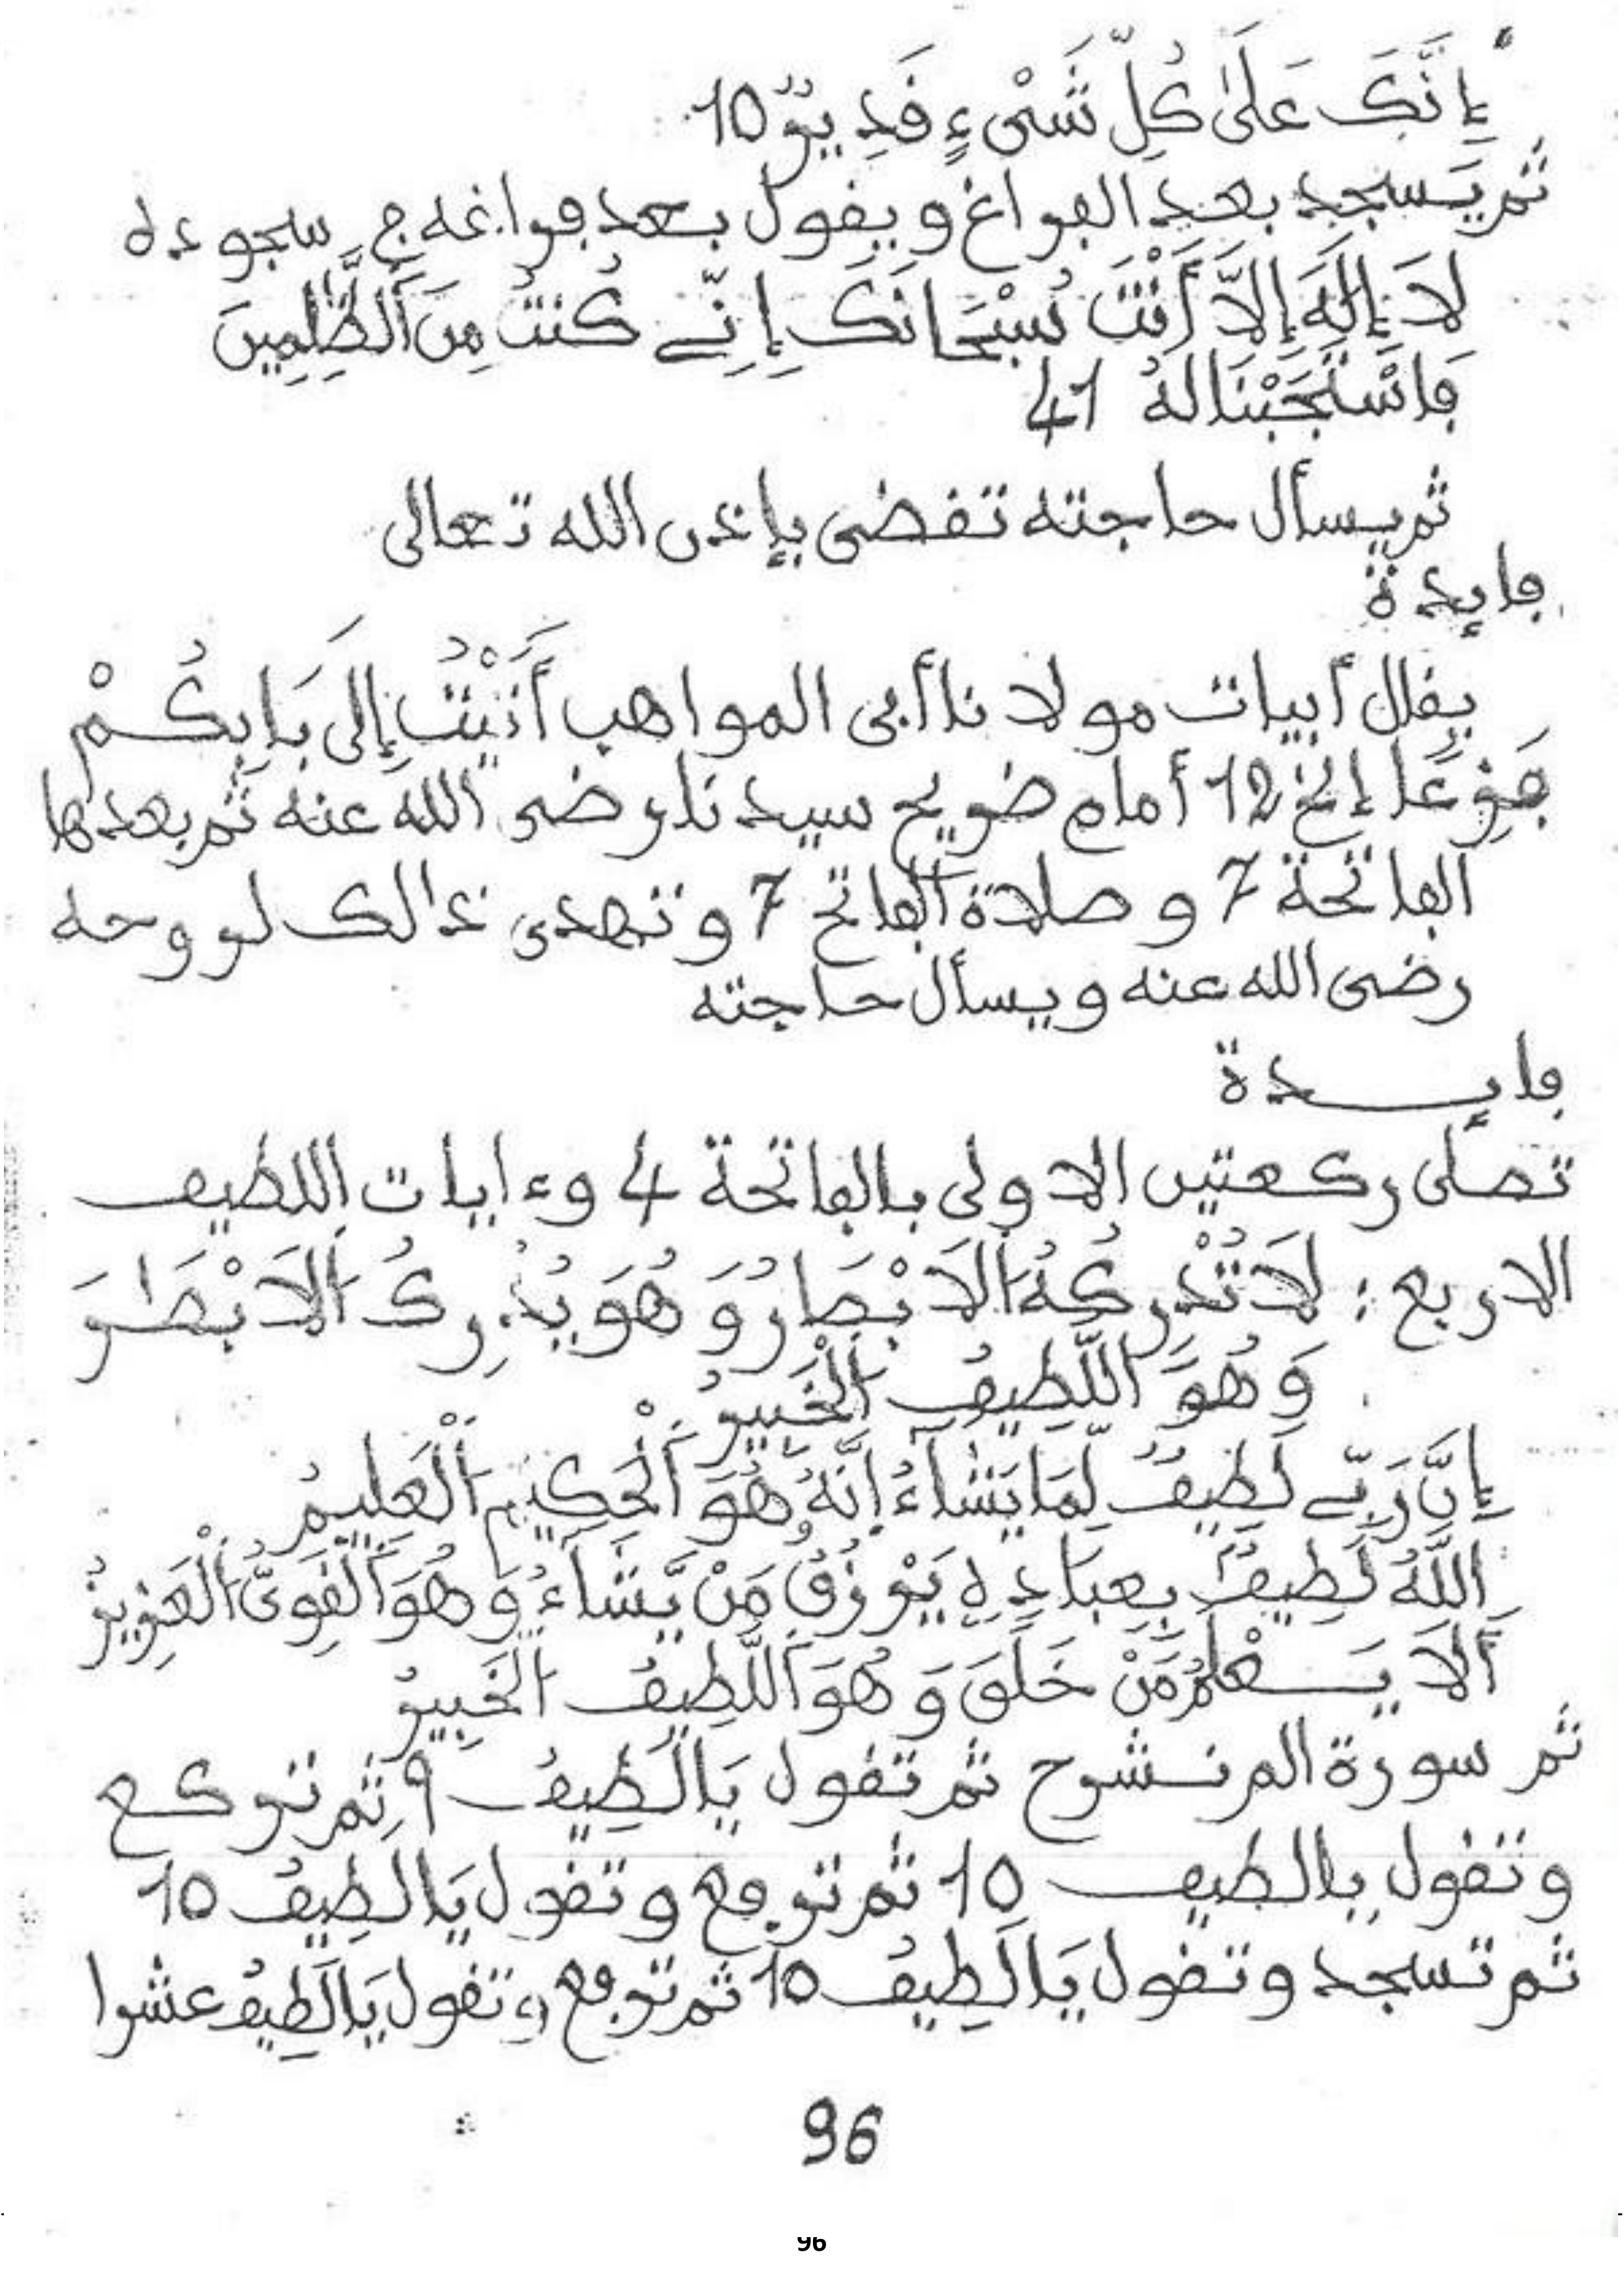 إِنَّكَ عَلَىٰ كُلِّ شَىْءٍ قَدِيرٌ 10
ثم يسجد بعد الفراغ ويقول بعد فراغه ج سجوده
لَا إِلَٰهَ إِلَّا أَنْتَ سُبْحَانَكَ إِنِّے كُنتُ مِنَ ٱلظَّٰلِمِينَ
فَاسْتَجَبْنَا لَهُ 41
ثم يسأل حاجته تقضى بإذن الله تعالى
فايدة
يقال أبيات مولانا أبى المواهب أَتَيْتُ إِلَى بَابِكُمْ
مَفْزِعًا إلخ 12 أمام ضريح سيدنا رضى الله عنه ثم بعدها
الفاتحة 7 و صلاة الفاتح 7 و تهدى ذالك لروحه
رضى الله عنه ويسأل حاجته
فايدة
تصلى ركعتين الاولى بالفاتحة 4 وءايات اللطيف
الاربع : لَا تُدْرِكُهُ ٱلَابْصَارُ وَهُوَ يُدْرِكُ ٱلَابْصَٰرَ
وَهُوَ ٱللَّطِيفُ ٱلْخَبِيرُ
إِنَّ رَبِّے لَطِيفٌ لِّمَا يَشَاءُ إِنَّهُ هُوَ ٱلْحَكِيمُ ٱلْعَلِيمُ
ٱللَّهُ لَطِيفٌ بِعِبَادِهِ يَرْزُقُ مَنْ يَّشَاءُ وَهُوَ ٱلْقَوِىُّ ٱلْعَزِيزُ
أَلَا يَعْلَمُ مَنْ خَلَقَ وَهُوَ ٱللَّطِيفُ ٱلْخَبِيرُ
ثم سورة الم نشرح ثم تقول يَا لَطِيفُ 9 ثم تركع
وتقول يا لطيف 10 ثم ترفع وتقول يَا لَطِيفُ 10
ثم تسجد وتقول يَا لَطِيفُ 10 ثم ترفع وتقول يَا لَطِيفُ عشرا
96
96